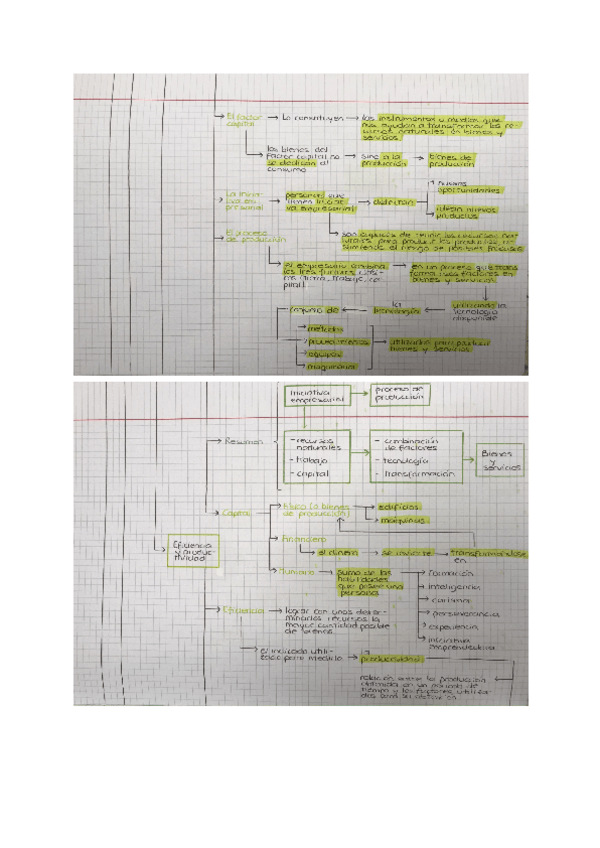 El factor
capital
Lo constituyen
los instrumentos o medios que
nos ayudan a transformar los re-
cursos naturales en bienes y
servicios
los bienes del
factor capital no
se dedican al
consumo
sino a la
producción
bienes de
producción
La iniciati-
va em-
presarial
personas que
tienen iniciati-
va empresarial
detectan
nuevas
oportunidades
idean nuevos
productos
son capaces de reunir los recursos
para producir los productos
asumiendo el riesgo de posibles fracasos
El proceso
de producción
el empresario combina
los tres factores
(tierra, trabajo, ca-
pital)
en un proceso que trans-
forma esos factores en
bienes y servicios
utilizando la
tecnología
disponible
la
tecnología
conjunto de
métodos
procedimientos
equipos
maquinaria
utilizados para producir
bienes y servicios
Iniciativa
empresarial
proceso de
producción
Resumen
- recursos
naturales
- trabajo
- capital
- combinación
de factores
- tecnología
- transformación
Bienes
y
servicios
Eficiencia
y produc-
tividad
Capital
Físico (o bienes
de producción)
edificios
máquinas
Financiero
el dinero
se invierte
transformándose
en
Humano
suma de las
habilidades
que posee una
persona
formación
inteligencia
carisma
perseverancia
experiencia
iniciativa
emprendedora
Eficiencia
lograr con unos deter-
minados recursos la
mayor cantidad posible
de bienes
el indicador utili-
zado para medirlo
la
productividad
relación entre la producción
obtenida en un periodo de
tiempo y los factores utiliza-
dos para su obtención